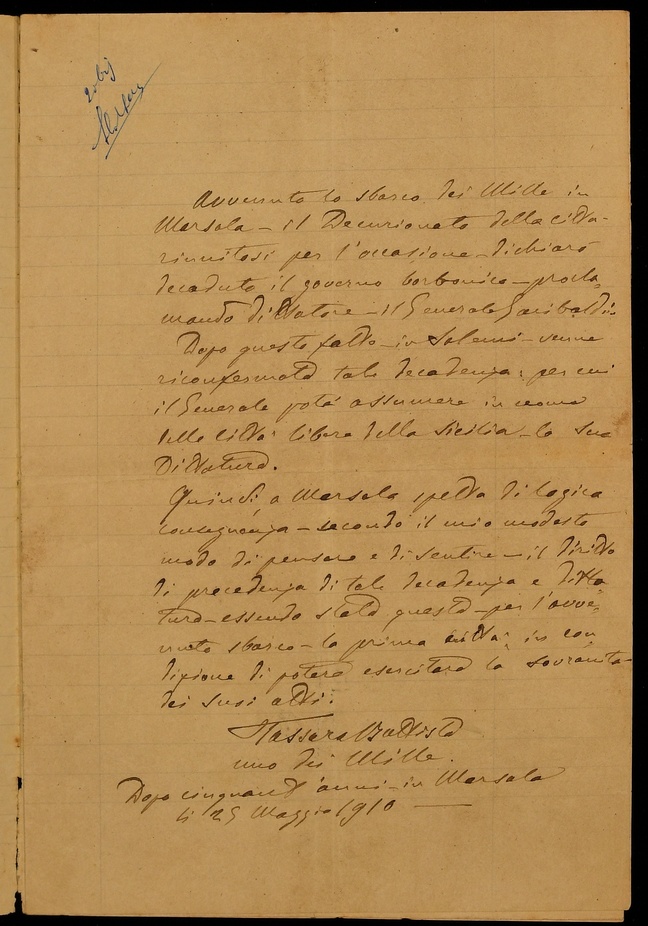 20 bis
Avvenuto lo sbarco dei Mille in
Marsala – il Decurionato della città –
riunitosi per l'occasione – dichiarò
decaduto il governo borbonico – procla-
mando Dittatore – il Generale Garibaldi.
Dopo questo fatto – in Salemi – venne
riconfermata tale decadenza: per cui
il Generale potè assumere in nome
delle città libere della Sicilia – la sua
Dittatura.
Quindi, a Marsala spetta di logica
conseguenza – secondo il mio modesto
modo di pensare e di sentire – il diritto
di precedenza di tale decadenza e ditta-
tura – essendo stata questa – per l'avve-
nuto sbarco – la prima città in con
dizione di potere esercitare la sovranità
dei suoi atti.
Tassara Battista
uno dei Mille.
Dopo cinquant'anni – in Marsala
li 25 Maggio 1910